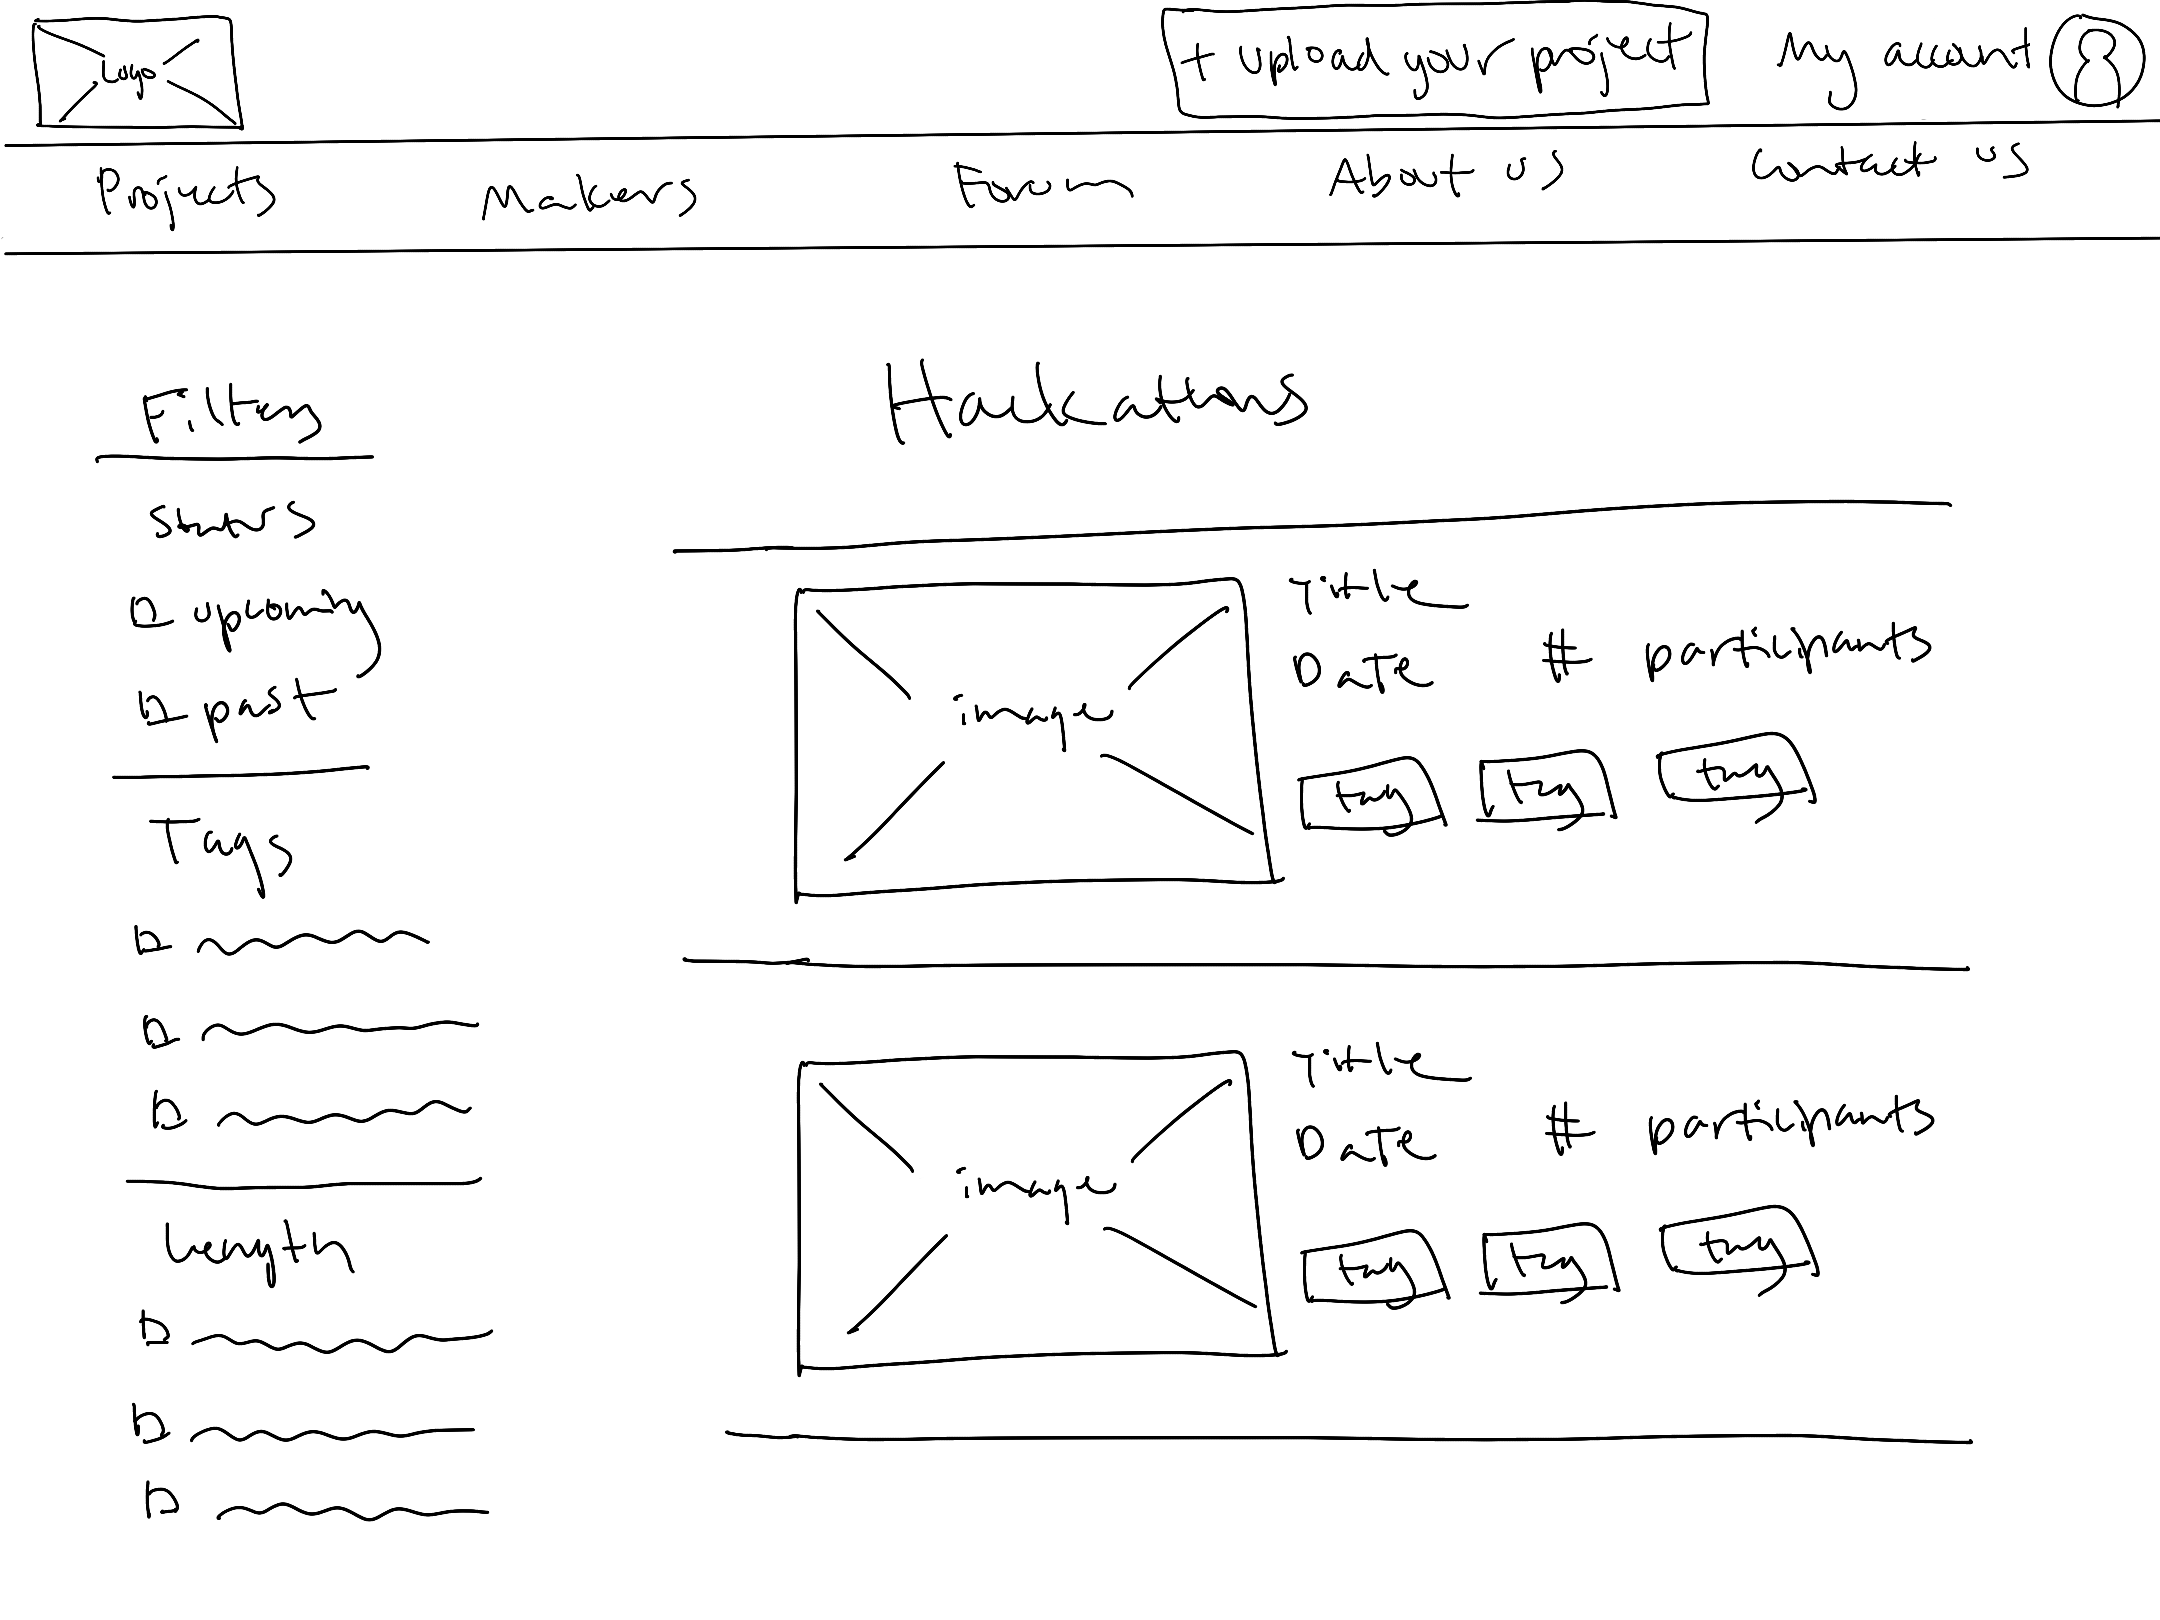 Logo
+ upload your project
My account
Projects
Makers
Forum
About us
Contact us
Filters
Status
upcoming
past
Tags
Length
Hackathons
image
Title
Date
# participants
tag
tag
tag
image
Title
Date
# participants
tag
tag
tag